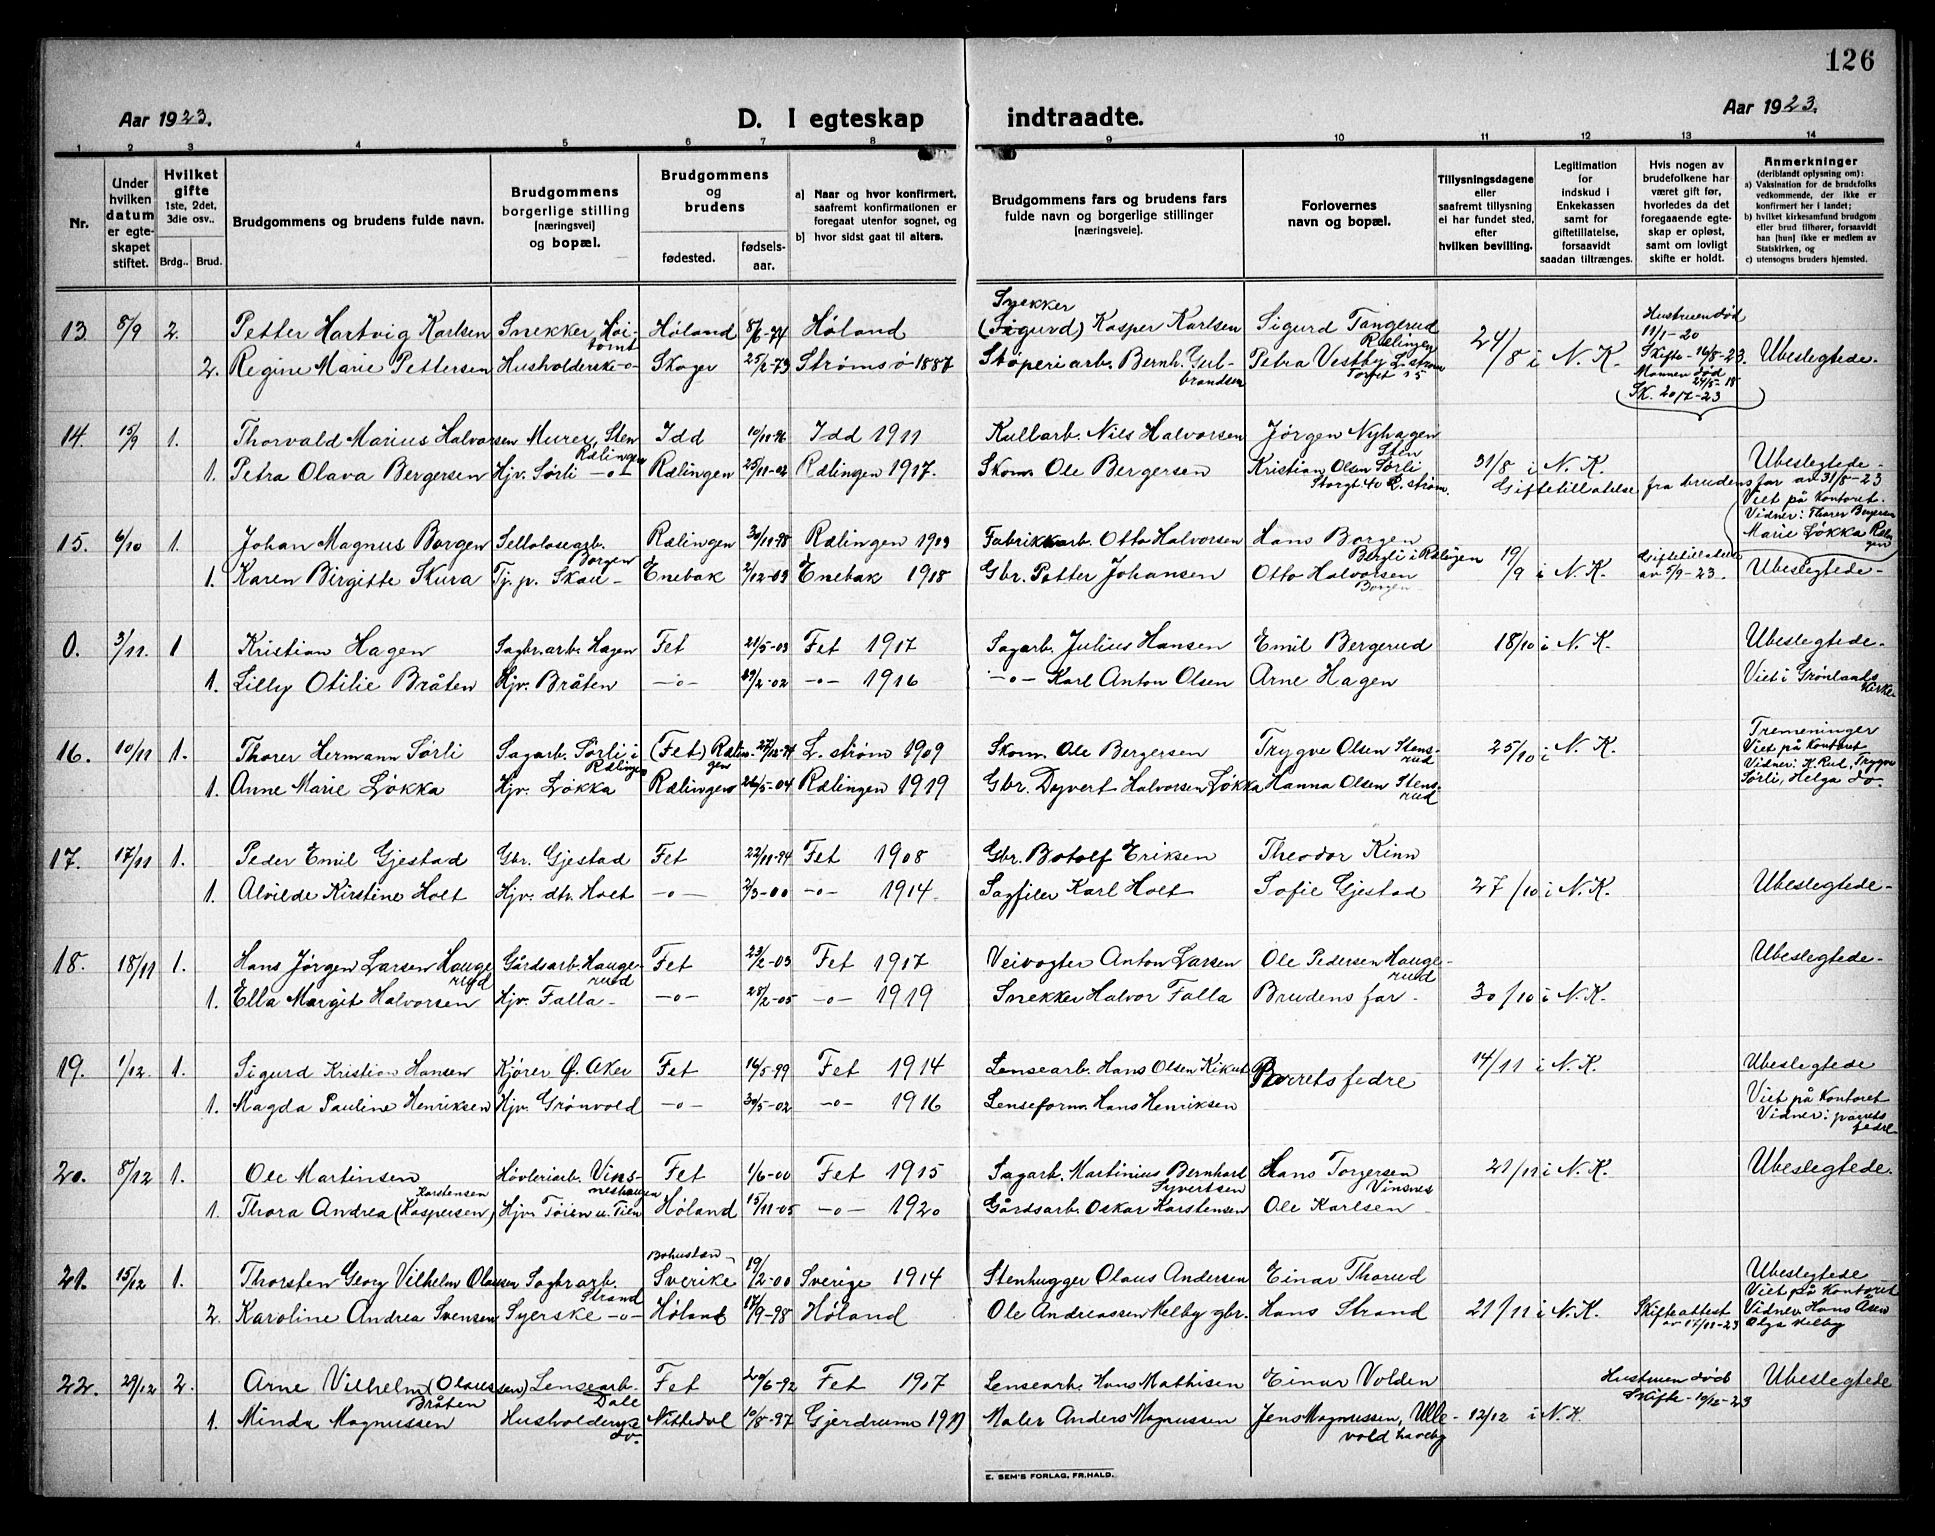 126
Aar 1923.
D. I egteskap indtraadte.
Aar 1923.
1 2 3 4 5 6 7 8 9 10 11 12 13 14
Nr.
Under hvilken datum er egteskapet stiftet.
Hvilket gifte 1ste, 2det, 3die osv.. Brdg.. Brud.
Brudgommens og brudens fulde navn.
Brudgommens borgerlige stilling [næringsvei] og bopæl.
Brudgommens og brudens fødested. fødsels-aar.
a) Naar og hvor konfirmert, saafremt konfirmationen er foregaat utenfor sognet, og
b) hvor sidst gaat til alters.
Brudgommens fars og brudens fars fulde navn og borgerlige stillinger (næringsveie).
Forlovernes navn og bopæl.
Tillysningsdagene eller saafremt tillysning ei har fundet sted, efter hvilken bevilling.
Legitimation for indskud i Enkekassen samt for giftetillatelse, forsaavidt saadan tiltrænges.
Hvis nogen av brudefolkene har været gift før, hvorledes da det foregaaende egteskap er opløst, samt om lovligt skifte er holdt.
Anmerkninger (deriblandt oplysning om):
a) Vaksination for de brudefolks vedkommende, der ikke er konfirmert her i landet;
b) hvilket kirkesamfund brudgom eller brud tilhører, forsaavidt han [hun] ikke er medlem av Statskirken, og
c) utensogns bruders hjemsted.
13. 8/9 2. Petter Hartvig Karlsen Snekker, Høitomt Høland 8/6-74 Høland Snekker (Sigurd) Kasper Karlsen Sigurd Tangerud Rælingen 24/8 i N. K. Hustruen død 11/1-20 Skifte 16/8-23.
2. Regine Marie Pettersen Husholderske -o- Skoger 25/2-73 Strømsø 1887 Støperiarb. Bernh. Gulbrandsen Petra Vestby L.strøm Torvet 15 Mannen død 24/5-18 Sk. 20/7-23 Ubeslegtede.
14. 15/9 1. Thorvald Marius Halvorsen Murer, Sten Rælingen Idd 10/11-96 Idd 1911 Kullarb. Nils Halvorsen Jørgen Nyhagen Sten
1. Petra Olava Bergersen Hjv. Sørli -o- Rælingen 25/11-02 Rælingen 1917. Skom. Ole Bergersen Kristian Olsen Sørli Storgt. 40 L. strøm. 31/8 i N. K. Ubeslegtede -
Giftetillatelse fra brudens far av 31/8-23
Viet på Kontoret. Vidner: Thorer Bergersen Marie Løkka Rælingen
15. 6/10 1. Johan Magnus Borgen Sellolosearb. Borgen Rælingen 30/11-98 Rælingen 1913 Fabrikkarb. Otto Halvorsen Hans Borgen Børli i Rælingen
1. Karen Birgitte Skura Tj. p. Skau - Enebak 2/12-03 Enebak 1918 Gbr. Petter Johansen Otto Halvorsen Borgen 19/9 i N. K. Giftetillatelse av 5/9-23. Ubeslegtede -
0. 3/11. 1 Kristian Hagen Sagbr.arb. Hagen Fet 21/5-03 Fet 1917 Sagarb. Julius Hansen Emil Bergerud 18/10 i N. K. Ubeslegtede -
1. Lilly Otilie Bråten Hjv. Bråten -o- 19/2-02 -o- 1916 -o- Karl Anton Olsen Arne Hagen Viet i Grønlands kirke
16. 10/11 1. Thorer Hermann Sørli Sagarb. Sørli i Rælingen (Fet) Rælingen 27/12-94 L. strøm 1909 Skom. Ole Bergersen Trygve Olsen Stensrud 25/10 i N. K. Tremeninger Viet på Kontoret
1. Anne Marie Løkka Hjv. Løkka Rælingen 26/5-04 Rælingen 1919 Gbr. Dyvert Halvorsen Løkka Hanna Olsen Stensrud Vidner: K. Rul, Trygve Sørli, Helga do -
17. 17/11 1. Peder Emil Gjestad Gbr. Gjestad Fet 22/11-94 Fet 1908 Gbr. Botolf Eriksen Theodor Kinn
1. Alvilde Kirstine Holt Hjv. dtr. Holt -o- 2/3-00 -o- 1914. Sagfiler Karl Holt Sofie Gjestad 27/10 i N. K. Ubeslegtede -
18. 18/11 1. Hans Jørgen Larsen Haugerud Gårdsarb. Haugerud Fet 23/2-03 Fet 1917 Veivogter Anton Larsen Ole Pedersen Haugerud Ubeslegtede -
1. Ella Margit Halvorsen Hjv. Falla - -o- 28/2-05 -o- 1919 Snekker Halvor Falla Brudens far - 30/10 i N. K.
19. 1/12. 1. Sigurd Kristian Hansen Kjører Ø. Aker Fet 16/5-99 Fet 1914 Lensearb. Hans Olsen Kikut Parrets fedre 14/11 i N. K. Ubeslegtede
1. Magda Pauline Henriksen Hjv. Grønvold -o- 30/5-02 -o- 1916 Lenseform. Hans Henriksen Viet på Kontoret Vidner: parrets fedre -
20. 8/12 1. Ole Martinsen Høvleriarb. Vinsneshaugen Fet 1/6-00 Fet 1915 Sagarb. Martinius Bernhard Syvertsen Hans Torgersen Vinsnes 21/11 i N. K. Ubeslegtede.
1. Thora Andrea (Kaspersen) Karstensen Hjv. Tøien u. Tien Høland 15/11-05 -o- 1920 Gårdsarb. Oskar Karstensen Ole Karlsen -
21. 15/12 1. Thorsten Georg Vilhelm Olaussen Sagbrarb. Strand Bohuslæn - Sverike 19/2-00 Sverige 1914 Stenhugger Olaus Andersen Einar Thorud Ubeslegtede Viet på Kontoret
2. Karoline Andrea Svensen Syerske -o- Høland 17/9-98 Høland Ole Andreassen Melby gbr. Hans Strand 21/11 i N. K. Skifteattest av 17/11-23 Vidner Hans Asen Olga Melby
22. 29/12 2. Arne Vilhelm (Olaussen) Bråten Lensearb. Dale Fet 20/6-92 Fet 1907 Lensearb. Hans Mathisen Einar Volden Hustruen død Skifte 10/12-23 Ubeslegtede
1. Minda Magnussen Husholderske do. Nittedal 10/8-97 Gjerdrum 1911 Maler Anders Magnussen Jens Magnussen, Ullevold haveby 12/12 i N. K.
E. SEM'S FORLAG, FR.HALD.